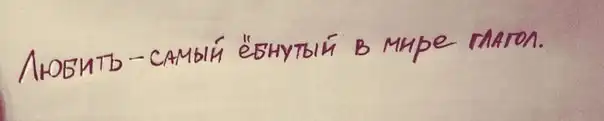 Любить - самый ёбнутый в мире глагол.